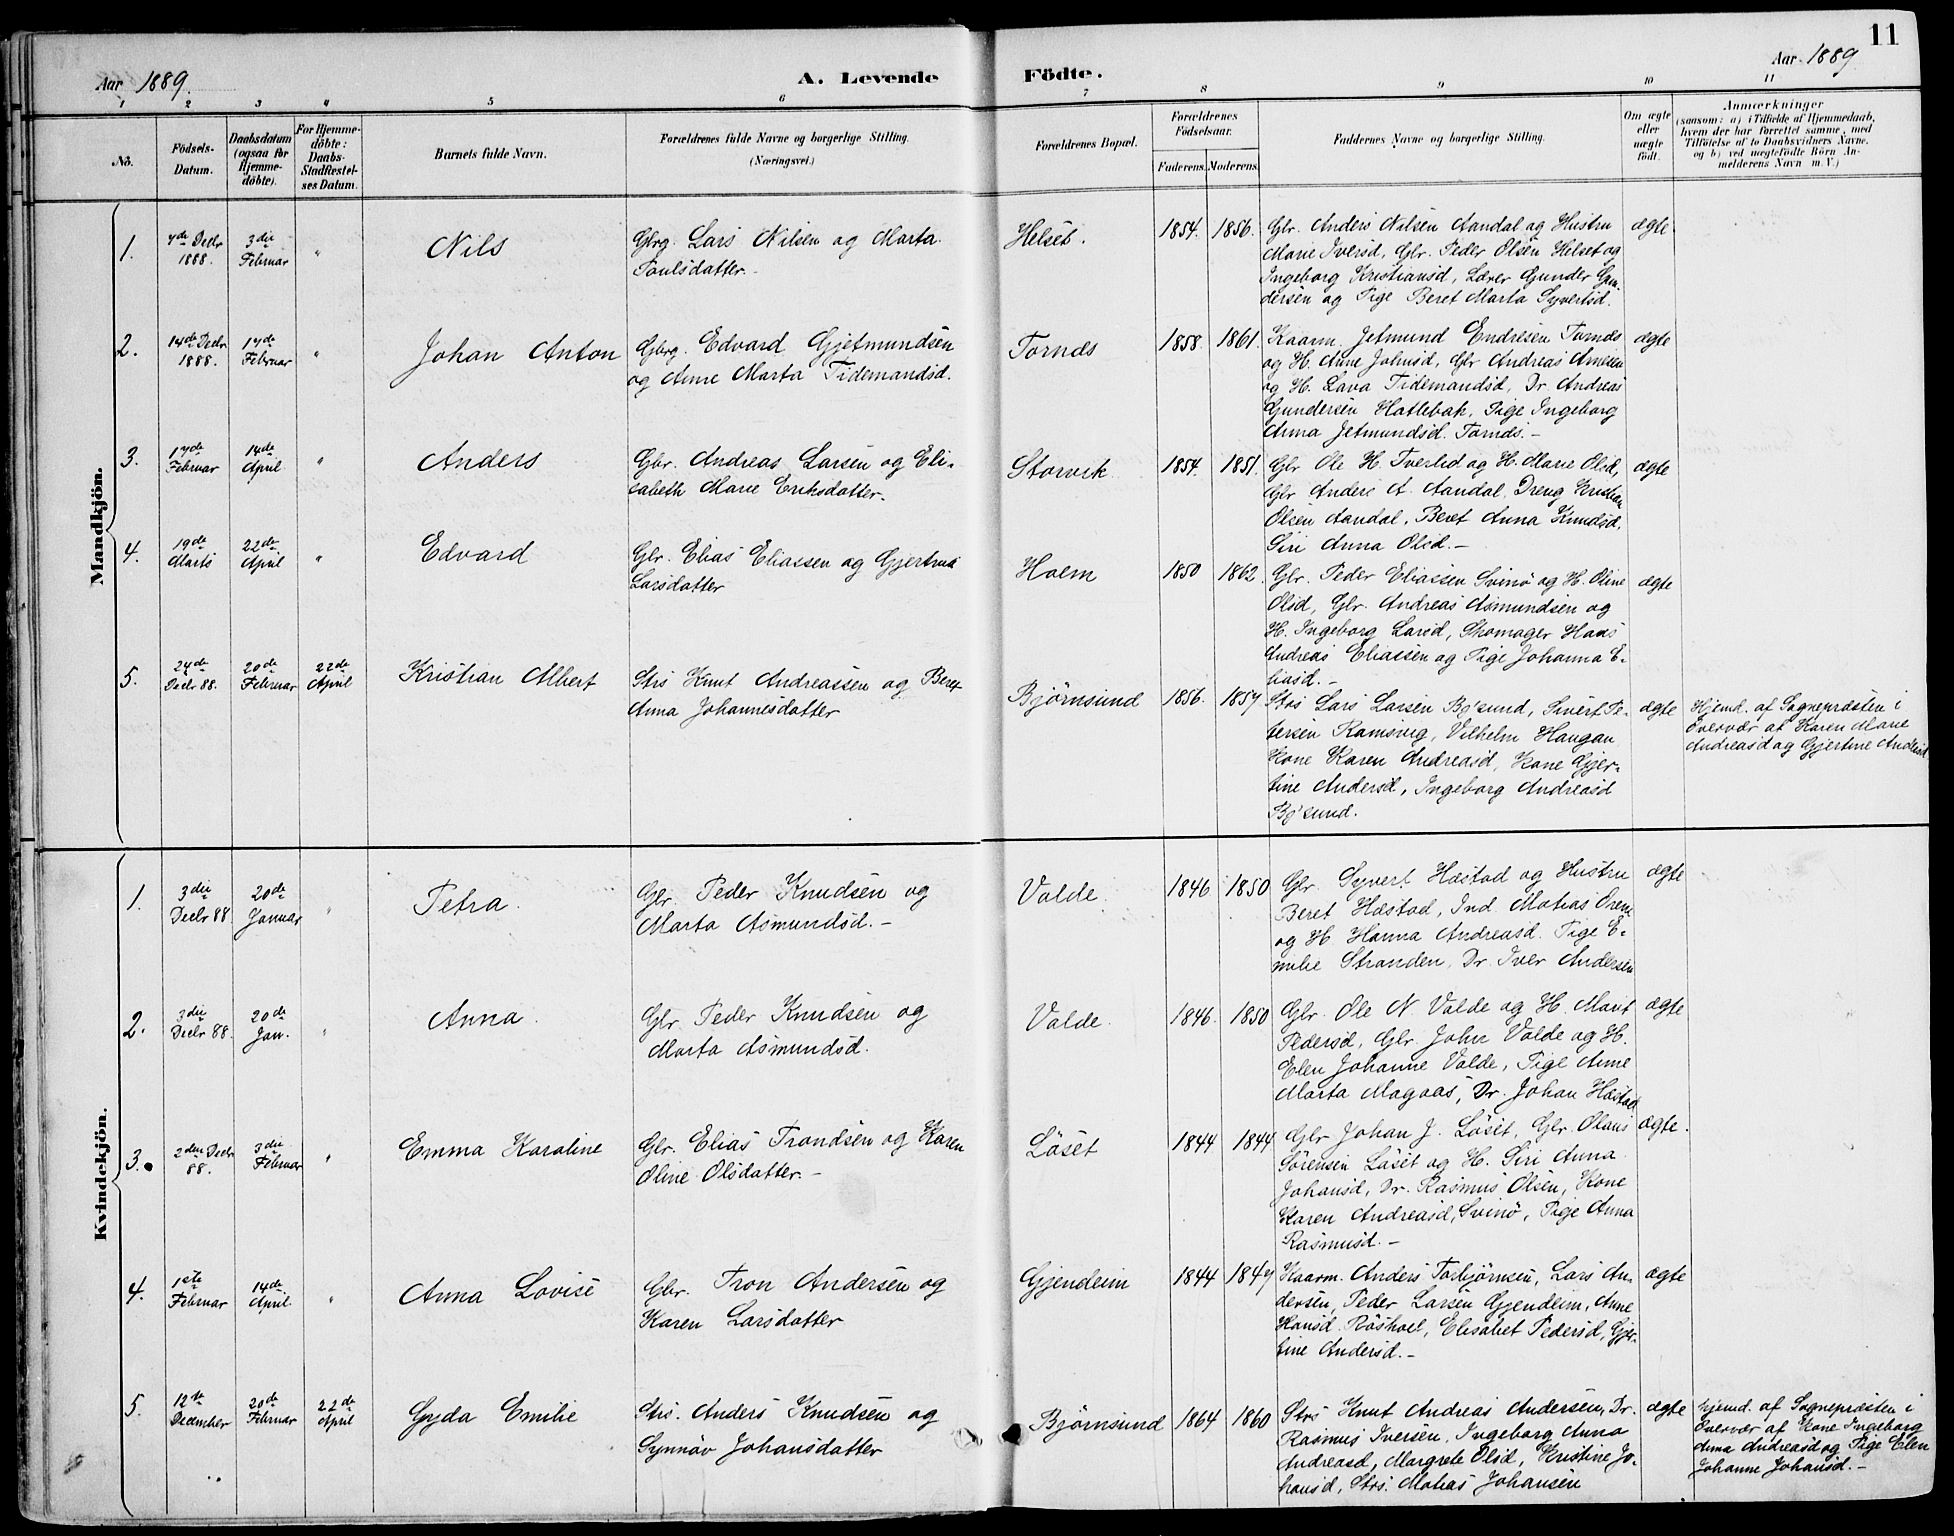 11
Aar 1889.
A. Levende
Födte.
Aar 1889
1 2 3 4 5 6 7 8 9 10 11
No.
Födsels-
Datum.
Daabsdatum
(ogsaa for
Hjemme-
döbte).
For Hjemme-
döbte:
Daabs-
Stadfæstel-
ses Datum.
Barnets fulde Navn.
Forældrenes fulde Navne og borgerlige Stilling.
(Næringsvei.)
Forældrenes Bopæl.
Forældrenes
Födselsaar.
Faderens. Moderens.
Faddernes Navne og borgerlige Stilling.
Om ægte
eller
uægte
födt.
Anmærkninger
(saasom: a) i Tilfælde af Hjemmedaab,
hvem der har forrettet samme, med
Tilföielse af to Daabsvidners Navne.
og b) ved uægtefödte Börn An-
melderens Navn m. V.)
Mandkjön.
1.
4de Decbr
1888.
3die
Februar
"
Nils
Gbrg. Lars Nilsen og Marta
Poulsdatter.-
Helset.
1854. 1856.
Gbr. Anders Nilsen Aandal og Hustru
Marie Iversd, Gbr. Peder Olsen Helset og
Ingeborg Kristiansd, Lærer Gunder Gun-
dersen og Pige Beret Marta Syvertsd.
ægte
2.
14de Decbr
1888.
17de
Februar
"
Johan Anton
Gbrg. Edvard Gjetmundsen
og Anne Marta Tidemandsd.
Tornes
1858 1861.
Kaarm. Jetmund Endresen Tornes
og H. Anne Johnsd, Gbr Andreas Arnesen
og H. Lava Tidemandsd, Dr. Andreas
Gundersen Hatlebak, Pige Ingeborg
Anna Jetmundsd. Tornes.-
ægte
3.
17de
Februar
14de
April
"
Anders
Gbr. Andreas Larsen og Eli-
sabeth Marie Eriksdatter.
Storvik
1854. 1851.
Gbr Ole H. Tverlid og H. Marie Olsd,
Gbr Anders A. Aandal, Dreng Kristian
Olsen Aandal, Beret Anna Knudsd.
Siri Anna Olsd.-
ægte
4.
19de
Marts
22de
April
"
Edvard
Gbr. Elias Eliassen og Gjertrud
Larsdatter
Holm
1850 1862.
Gbr. Peder Eliassen Svinö og H. Oline
Olsd, Gbr. Andreas Asmundsen og
H. Ingeborg Larsd, Skomager Hans
Andreas Eliassen og Pige Johanna E-
liasd.-
ægte
5.
24de
Decbr 88.
20de
Februar
22de
April
Kristian Albert
Strs Knut Andreassen og Beret
Anna Johannesdatter
Bjørnsund
1856. 1857
Strs Lars Larsen Bj'sund, Sivert Pe-
tersen Ramsvig, Vilhelm Haugan
Kone Karen Andreasd, Kone Gjer-
tine Andersd, Ingeborg Andreasd
Bj'sund.
ægte
Hjemd. af Sognepræsten i
Overvær af Karen Marie
Andreasd og Gjertine Andersd
Kvindekjön.
1.
3die
Decbr 88.
20de
Januar
"
Petra
Gbr. Peder Knudsen og
Marta Asmundsd.-
Valde
1846 1850
Gbr. Syvert Hæstad og Hustru
Beret Hæstad, Ind. Matias Orene
og H. Hanna Andreasd. Pige E-
milie Stranden, Dr. Iver Andersen
ægte
2.
3die
Decbr 88.
20de
Jan.
"
Anna
Gbr. Peder Knudsen og
Marta Asmundsd.
Valde
1846. 1850
Gbr. Ole N. Valde og H. Marit
Pedersd, Gbr. John Valde og H.
Elen Johanne Valde, Pige Anne
Marta Magaas, Dr. Johan Hæstad
ægte
3.
2den Decbr
88.
3die
Februar
"
Emma Karoline
Gbr. Elias Trondsen og Karen
Oline Olsdatter.-
Löset
1844 1844
Gbr Johan J. Löset, Gbr. Olaus
Sörensen Löset og H. Siri Anna
Johansd, Dr. Rasmus Olsen, Kone
Karen Andreasd, Svinö, Pige Anna
Rasmusd.-
ægte.
4.
1ste
Februar
14de
April
"
Anna Lovise
Gbr. Tron Andersen og
Karen Larsdatter
Gjendeim
1844 1847
Kaarm. Anders Torbjörnsen, Lars An-
dersen, Peder Larsen Gjendeim, Anne
Hansd. Röshol, Elisabet Pedersd, Gjer-
tine Andersd.-
ægte
5.
12te
December
20de
Februar
22de
April
Gyda Emilie
Strs. Anders Knudsen og
Synnöv Johansdatter
Bjørnsund
1864 1860
Strs Knut Andreas Andersen, Dr.
Rasmus Iversen, Ingeborg Anna
Andreasd, Margrete Olsd, Kristine Jo-
hansd, Strs. Matias Johansen
ægte
Hjemd. af Sognepræsten i
Overvær af Kone Ingeborg
Anna Andreasd og Pige Elen
Johanne Johansd.-